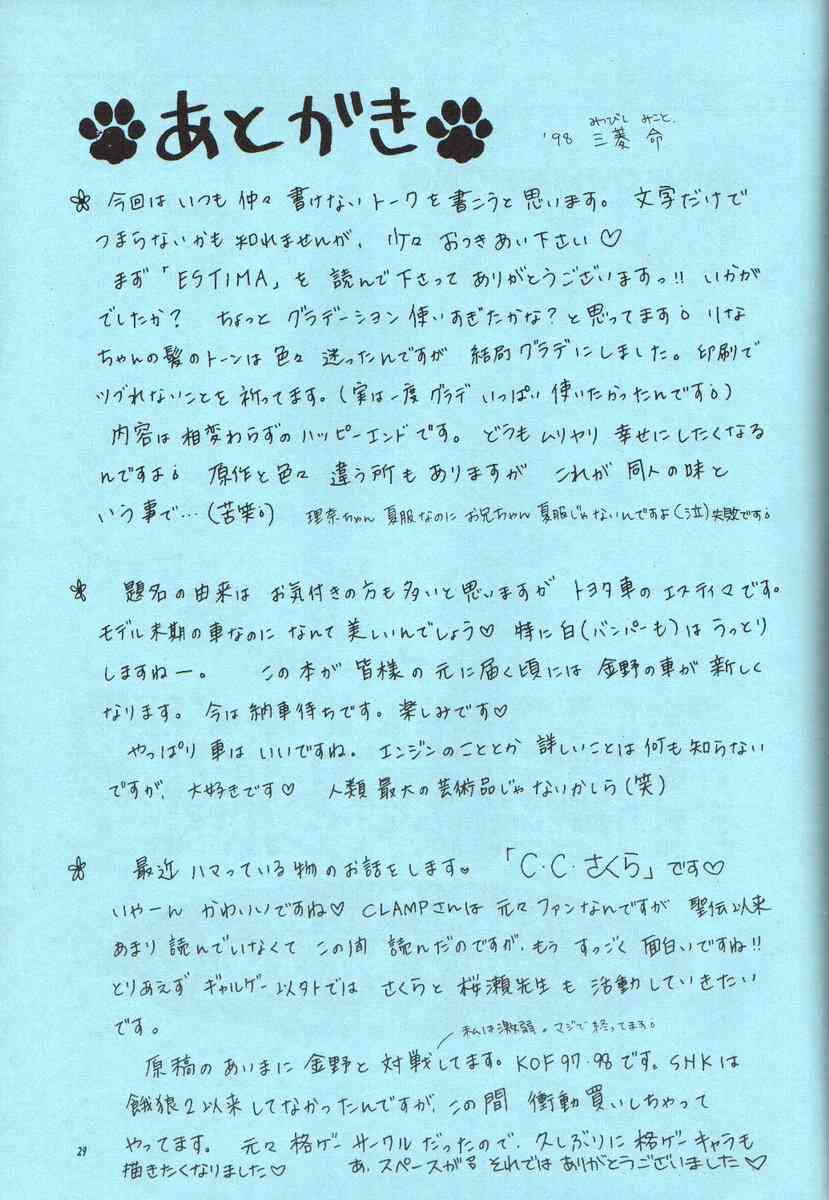 あとがき
みつびし みこと.
'98 三菱 命
今回は いつも 仲々 書けない トークを 書こうと 思います。 文字だけで
つまらないかも 知れませんが、 少々 おつきあい 下さい♡
まず「ESTIMA」を 読んで 下さって ありがとうございますっ!! いかが
でしたか? ちょっと グラデーション 使いすぎたかな? と思ってます。 りな
ちゃんの髪のトーンは 色々 迷ったんですが 結局 グラデにしました。 印刷で
ツブれないことを 祈ってます。(実は一度 グラデ いっぱい 使いたかったんです。)
内容は 相変わらずの ハッピーエンドです。 どうも ムリヤリ 幸せにしたくなる
んですよ。 原作と 色々 違う所も ありますが これが 同人の味と
いう事で…(苦笑。) 理奈ちゃん 夏服なのに お兄ちゃん 夏服じゃないんですよ(泣)失敗です。
題名の由来は お気付きの方も多いと思いますが トヨタ車の エスティマです。
モデル末期の車なのに なんて 美しいんでしょう♡ 特に 白(バンパーも)は うっとり
しますねー。 この本が 皆様の 元に届く頃には 金野の車が 新しく
なります。 今は 納車待ちです。 楽しみです♡
やっぱり 車は いいですね。 エンジンのこととか 詳しいことは 何も知らない
ですが、 大好きです♡ 人類最大の芸術品じゃないかしら(笑)
最近 ハマっている物の お話をします♥ 「C・C・さくら」です♡
いやーん かわいいですね♡ CLAMPさんは 元々ファンなんですが 聖伝以来
あまり 読んでいなくて この間 読んだのですが、もう すっごく 面白いですね!!
とりあえず ギャルゲー以外では さくらと 桜瀬先生も 活動していきたい
です。
私は激弱。マジで終ってます。
原稿の あいまに 金野と 対戦してます。 KOF97・98です。 SNKは
餓狼2以来 してなかったんですが、この間 衝動買いしちゃって
やってます。 元々 格ゲーサークルだったので、久しぶりに 格ゲーキャラも
描きたくなりました♡ あ、スペースが それでは ありがとうございました♡
29